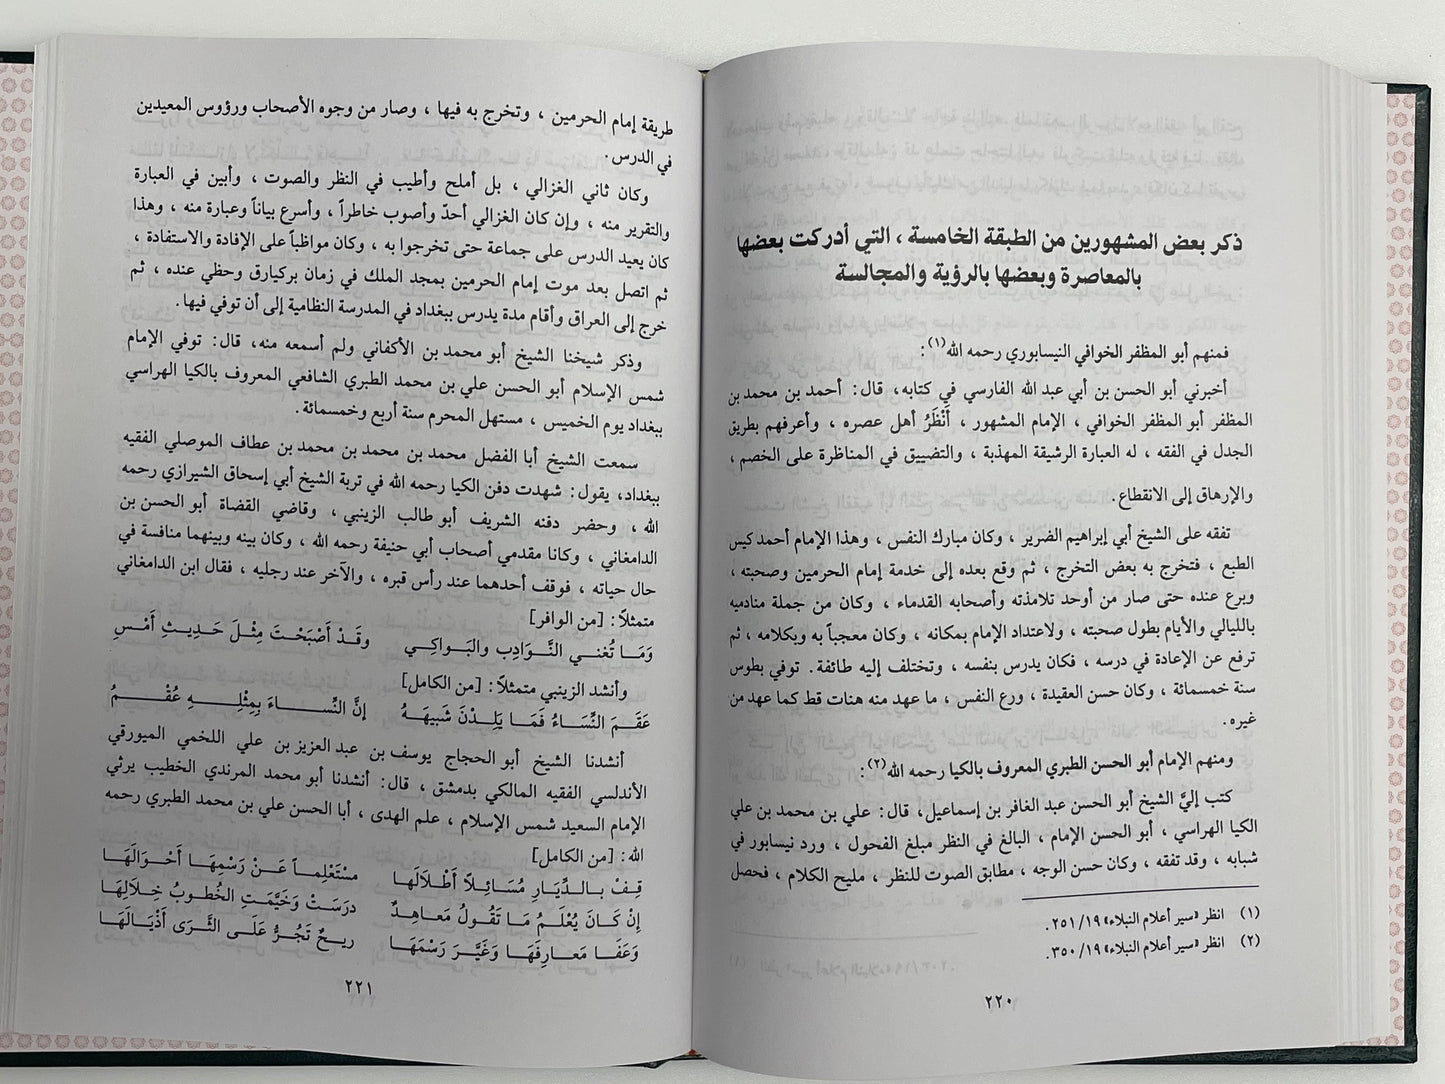 ذكر بعض المشهورين من الطبقة الخامسة ، التي أدركت بعضها
بالمعاصرة وبعضها بالرؤية والمجالسة
فمنهم أبو المظفر الخوافي النيسابوري رحمه الله(١) :
أخبرني أبو الحسن بن أبي عبد الله الفارسي في كتابه، قال: أحمد بن محمد بن
المظفر أبو المظفر الخوافي ، الإمام المشهور ، أَنْظَرُ أهل عصره ، وأعرفهم بطريق
الجدل في الفقه ، له العبارة الرشيقة المهذبة ، والتضييق في المناظرة على الخصم ،
والإرهاق إلى الانقطاع.
تفقه على الشيخ أبي إبراهيم الضرير ، وكان مبارك النفس ، وهذا الإمام أحمد كيس
الطبع ، فتخرج به بعض التخرج ، ثم وقع بعده إلى خدمة إمام الحرمين وصحبته ،
وبرع عنده حتى صار من أوحد تلامذته وأصحابه القدماء ، وكان من جملة منادميه
بالليالي والأيام بطول صحبته ، ولاعتداد الإمام بمكانه ، وكان معجباً به وبكلامه ، ثم
ترفع عن الإعادة في درسه ، فكان يدرس بنفسه ، وتختلف إليه طائفة. توفي بطوس
سنة خمسمائة ، وكان حسن العقيدة ، ورع النفس ، ما عهد منه هنات قط كما عهد من
غيره.
ومنهم الإمام أبو الحسن الطبري المعروف بالكيا رحمه الله(٢) :
كتب إليَّ الشيخ أبو الحسن عبد الغافر بن إسماعيل، قال: علي بن محمد بن علي
الكيا الهراسي ، أبو الحسن الإمام ، البالغ في النظر مبلغ الفحول ، ورد نيسابور في
شبابه ، وقد تفقه ، وكان حسن الوجه ، مطابق الصوت للنظر ، مليح الكلام ، فحصل
(١) انظر «سير أعلام النبلاء» ٢٥١/١٩.
(٢) انظر «سير أعلام النبلاء» ٣٥٠/١٩.
٢٢٠
طريقة إمام الحرمين ، وتخرج به فيها ، وصار من وجوه الأصحاب ورؤوس المعيدين
في الدرس.
وكان ثاني الغزالي ، بل أملح وأطيب في النظر والصوت ، وأبين في العبارة
والتقرير منه ، وإن كان الغزالي أحدّ وأصوب خاطراً ، وأسرع بياناً وعبارة منه ، وهذا
كان يعيد الدرس على جماعة حتى تخرجوا به ، وكان مواظباً على الإفادة والاستفادة ،
ثم اتصل بعد موت إمام الحرمين بمجد الملك في زمان بركيارق وحظي عنده ، ثم
خرج إلى العراق وأقام مدة يدرس ببغداد في المدرسة النظامية إلى أن توفي فيها.
وذكر شيخنا الشيخ أبو محمد بن الأكفاني ولم أسمعه منه، قال: توفي الإمام
شمس الإسلام أبو الحسن علي بن محمد الطبري الشافعي المعروف بالكيا الهراسي
ببغداد يوم الخميس ، مستهل المحرم سنة أربع وخمسمائة.
سمعت الشيخ أبا الفضل محمد بن محمد بن محمد بن عطاف الموصلي الفقيه
ببغداد، يقول: شهدت دفن الكيا رحمه الله في تربة الشيخ أبي إسحاق الشيرازي رحمه
الله ، وحضر دفنه الشريف أبو طالب الزينبي ، وقاضي القضاة أبو الحسن بن
الدامغاني ، وكانا مقدمي أصحاب أبي حنيفة رحمه الله ، وكان بينه وبينهما منافسة في
حال حياته ، فوقف أحدهما عند رأس قبره ، والآخر عند رجليه ، فقال ابن الدامغاني
متمثلاً: [من الوافر]
وَمَا تُغني النَّوَادِب والبَواكي وقَدْ أَصْبَحْتَ مِثْلَ حَدِيثِ أَمْسِ
وأنشد الزينبي متمثلاً: [من الكامل]
عَقَمَ النِّسَاءُ فَمَا يَلِدْنَ شَبِيهَهُ إنَّ النِّسَاءَ بِمِثْلِهِ عُقْمُ
أنشدنا الشيخ أبو الحجاج يوسف بن عبد العزيز بن علي اللخمي الميورقي
الأندلسي الفقيه المالكي بدمشق ، قال: أنشدنا أبو محمد المرندي الخطيب يرثي
الإمام السعيد شمس الإسلام ، علم الهدى ، أبا الحسن علي بن محمد الطبري رحمه
الله: [من الكامل]
قِفْ بالدِّيَارِ مُسَائِلاً أَطْلاَلَها مسْتَعْلِماً عَنْ رَسْمِهَا أَحْوَالَهَا
إنْ كَانَ يُعْلَمُ مَا تَقُولُ مَعاهِدٌ درَسَتْ وَخَيَّمَتِ الخُطوبُ خِلالِهَا
وَعَفَا مَعَارِفَهَا وَغَيَّرَ رَسْمَهَا ريحٌ تَجُرُّ عَلَى الثَّرَى أَذْيَالَهَا
٢٢١